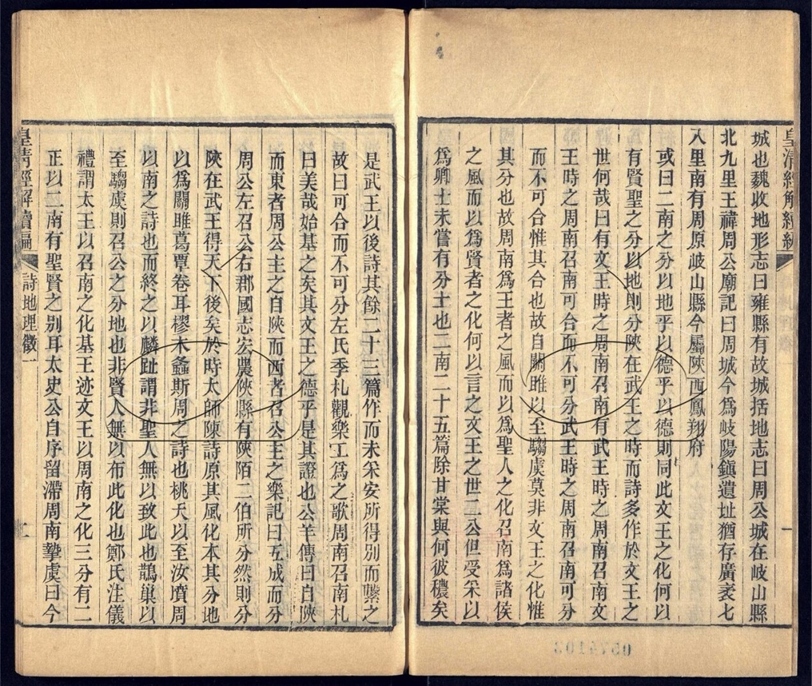 城也魏收地形志曰雍縣有故城括地志曰周公城在岐山縣
北九里王禕周公廟記曰周城今爲岐陽鎭遺址猶存廣袤七
八里南有周原岐山縣今屬陝西鳳翔府
或曰二南之分以地乎以德乎以德則同此文王之化何以
有賢聖之分以地則分陝在武王之時而詩多作於文王之
世何哉曰有文王時之周南召南有武王時之周南召南文
王時之周南召南可合而不可分武王時之周南召南可分
而不可合惟其合也故自關雎以至騶虞莫非文王之化惟
其分也故周南爲王者之風而以爲聖人之化召南爲諸侯
之風而以爲賢者之化何以言之文王之世二公但受采以
爲卿士未嘗有分土也二南二十五篇除甘棠與何彼穠矣
是武王以後詩其餘二十三篇作而未采安所得別而繫之
故曰可合而不可分左氏季札觀樂工爲之歌周南召南札
曰美哉始基之矣其文王之德乎是其證也公羊傳曰自陝
而東者周公主之自陝而西者召公主之樂記曰五成而分
周公左召公右郡國志宏農陝縣有陝陌二伯所分然則分
陝在武王得天下後矣於時太師陳詩原其風化本其分地
以爲關雎葛覃卷耳樛木螽斯周之詩也桃夭以至汝墳周
以南之詩也而終之以麟趾謂非聖人無以致此也鵲巢以
至騶虞則召公之分地也非賢人無以布此化也鄭氏注儀
禮謂太王以召南之化基王迹文王以周南之化三分有二
正以二南有聖賢之别耳太史公自序留滯周南摯虞曰今
皇清經解續編
詩地理徵一